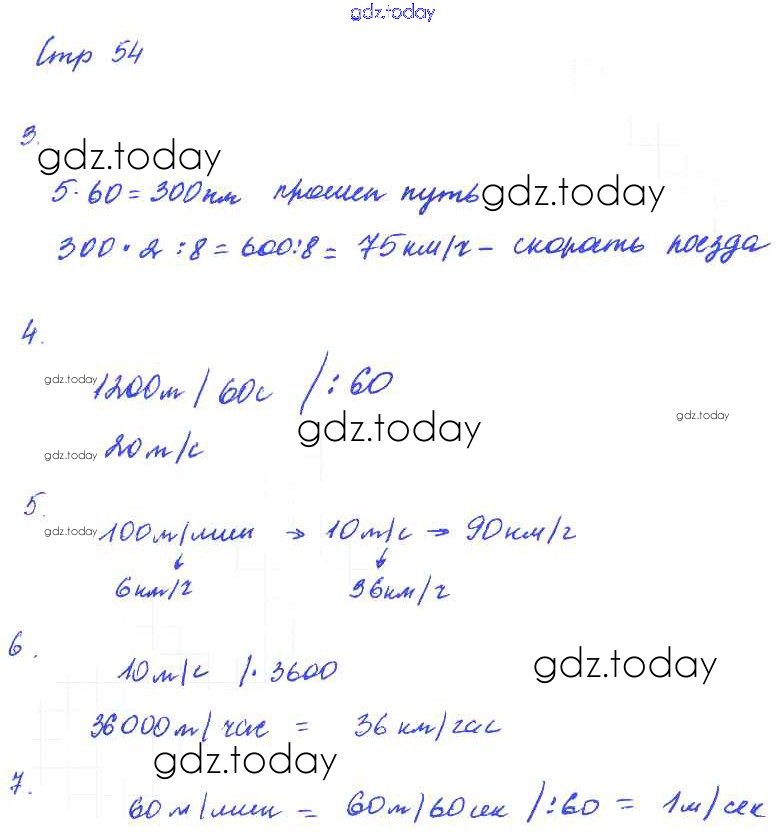 gdz.today
Стр 54
3.
gdz.today
5·60=300км прошел путь gdz.today
300·2:8=600:8=75км/ч – скорость поезда
4.
gdz.today 1200м/60с /:60
gdz.today gdz.today
gdz.today 20м/с
5.
gdz.today 100м/мин → 10м/с → 90км/ч
6км/ч 36км/ч
gdz.today
6.
10м/с /·3600 gdz.today
36000м/час = 36км/час
gdz.today
7.
60м/мин = 60м/60сек /:60 = 1м/сек